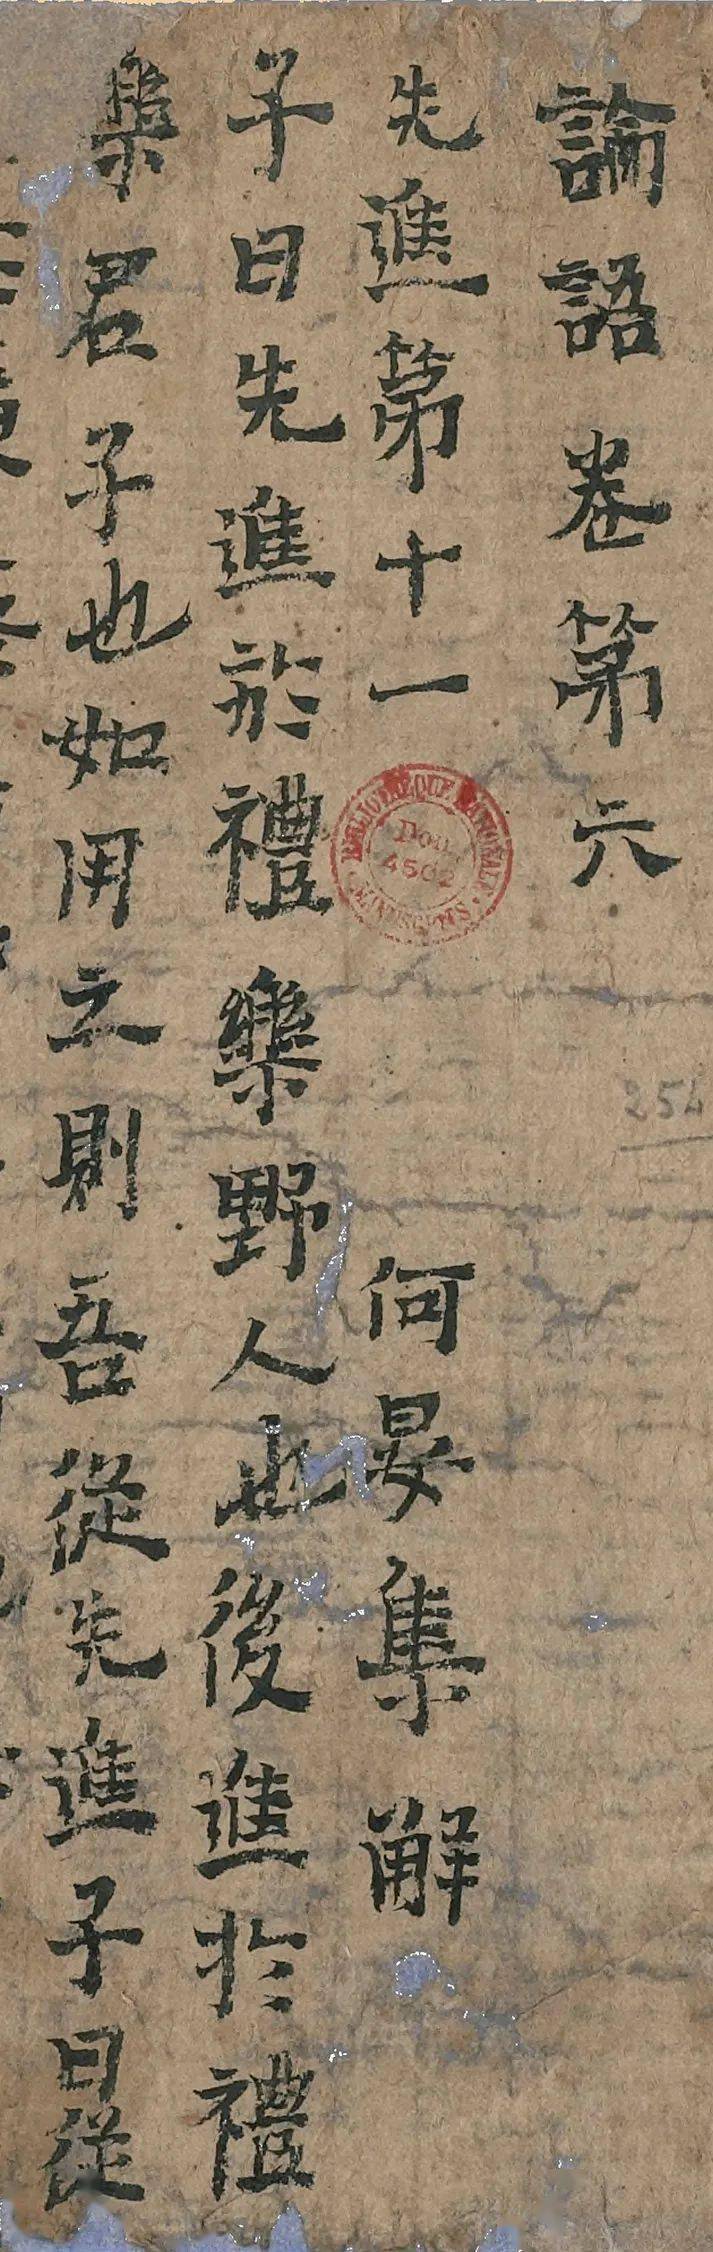 論語卷第六
先進第十一 何晏集解
子曰先進於禮樂野人也後進於禮
樂君子也如用之則吾從先進子曰從
BIBLIOTHÈQUE NATIONALE
Don.
4502
MANUSCRITS
254